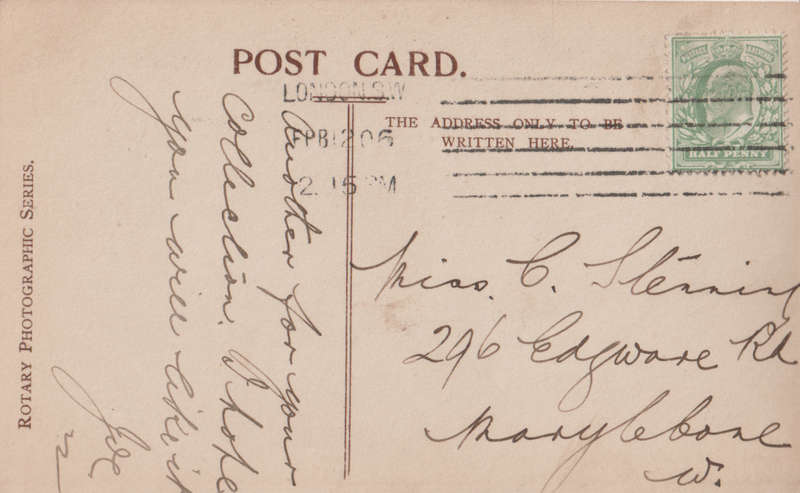 POST CARD.
LONDON. S.W
FEB 12 06
2. 15 PM
THE ADDRESS ONLY TO BE
WRITTEN HERE.
HALF PENNY
Another for your
Collection. I hope
you will like it
Joe
Miss. C. Stenning
296 Edgware Rd
Marylebone
W.
ROTARY PHOTOGRAPHIC SERIES.